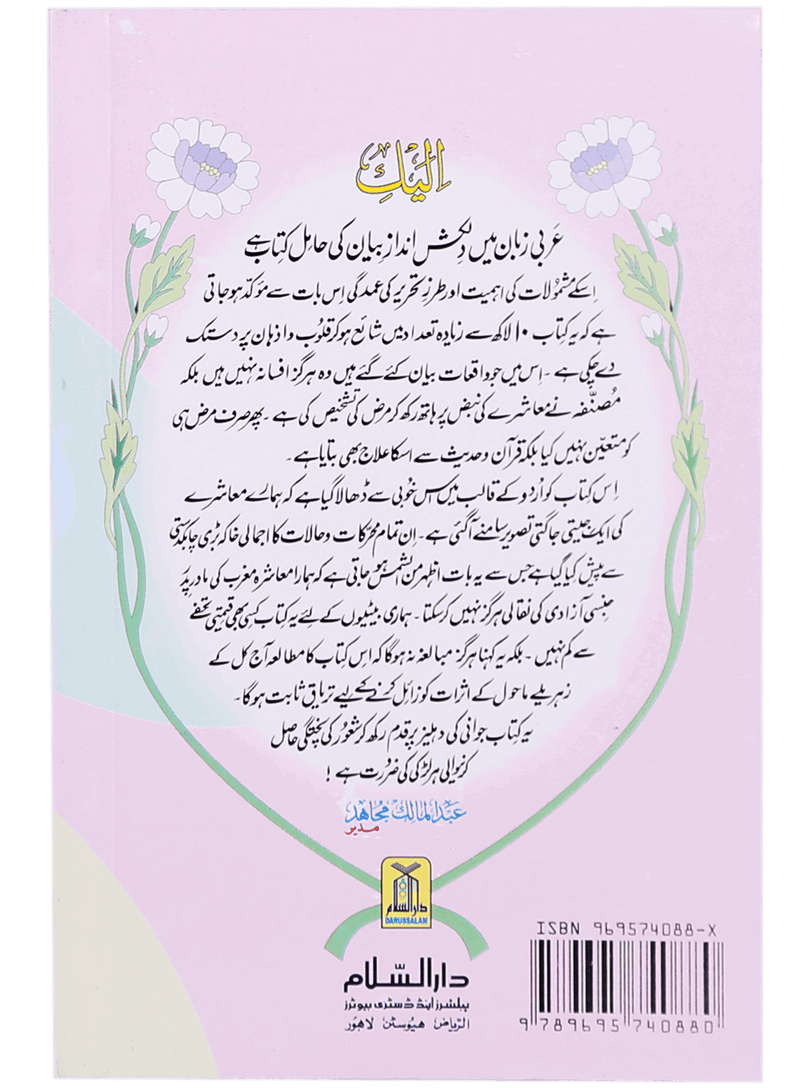 اِلَیْكِ
عَربی زبان میں دِلکش اندازِ بیان کی حامل کتاب ہے
اِسکے مشمُولات کی اہمیت اور طرزِ تحریر کی عمدگی اِس بات سے مؤکّد ہو جاتی
ہے کہ یہ کِتاب ۱۰ لاکھ سے زیادہ تعداد میں شائع ہو کر قلُوب و اذہان پر دستک
دے چکی ہے ۔ اِس میں جو واقعات بیان کئے گئے ہیں وہ ہرگز افسانہ نہیں ہیں بلکہ
مُصنّفہ نے معاشرے کی نبض پر ہاتھ رکھ کر مرض کی تشخیص کی ہے ۔ پھر صرف مرض ہی
کو متعیّن نہیں کیا بلکہ قرآن و حدیث سے اسکا علاج بھی بتایا ہے ۔
اِس کتاب کو اُردو کے قالب میں اس خُوبی سے ڈھالا گیا ہے کہ ہمارے معاشرے
کی ایک جیتی جاگتی تصویر سامنے آ گئی ہے ۔ اِن تمام محرّکات و حالات کا اجمالی خاکہ بڑی چابکدستی
سے پیش کیا گیا ہے جس سے یہ بات اظہر من الشمس ہو جاتی ہے کہ ہمارا معاشرہ مغرب کی مادر پدر
جنسی آزادی کی نقالی ہرگز نہیں کر سکتا ۔ ہماری بیٹیوں کے لئے یہ کتاب کِسی بھی قیمتی تحفے
سے کم نہیں ۔ بلکہ یہ کہنا ہرگز مبالغہ نہ ہوگا کہ اس کِتاب کا مطالعہ آج کل کے
زہریلے ماحول کے اثرات کو زائل کرنے کے لیے تریاق ثابت ہوگا ۔
یہ کِتاب جوانی کی دہلیز پر قدم رکھ کر شعُور کی پختگی حاصل
کرنیوالی ہر لڑکی کی ضرُورت ہے !
عَبدُالمالِك مُجاهد
مدیر
دارالسلام
DARUSSALAM
دارالسّلام
پبلشرز اینڈ ڈسٹری بیوٹرز
الریاض ہیوسٹن لاہور
ISBN 969574088-X
9 789695 740880